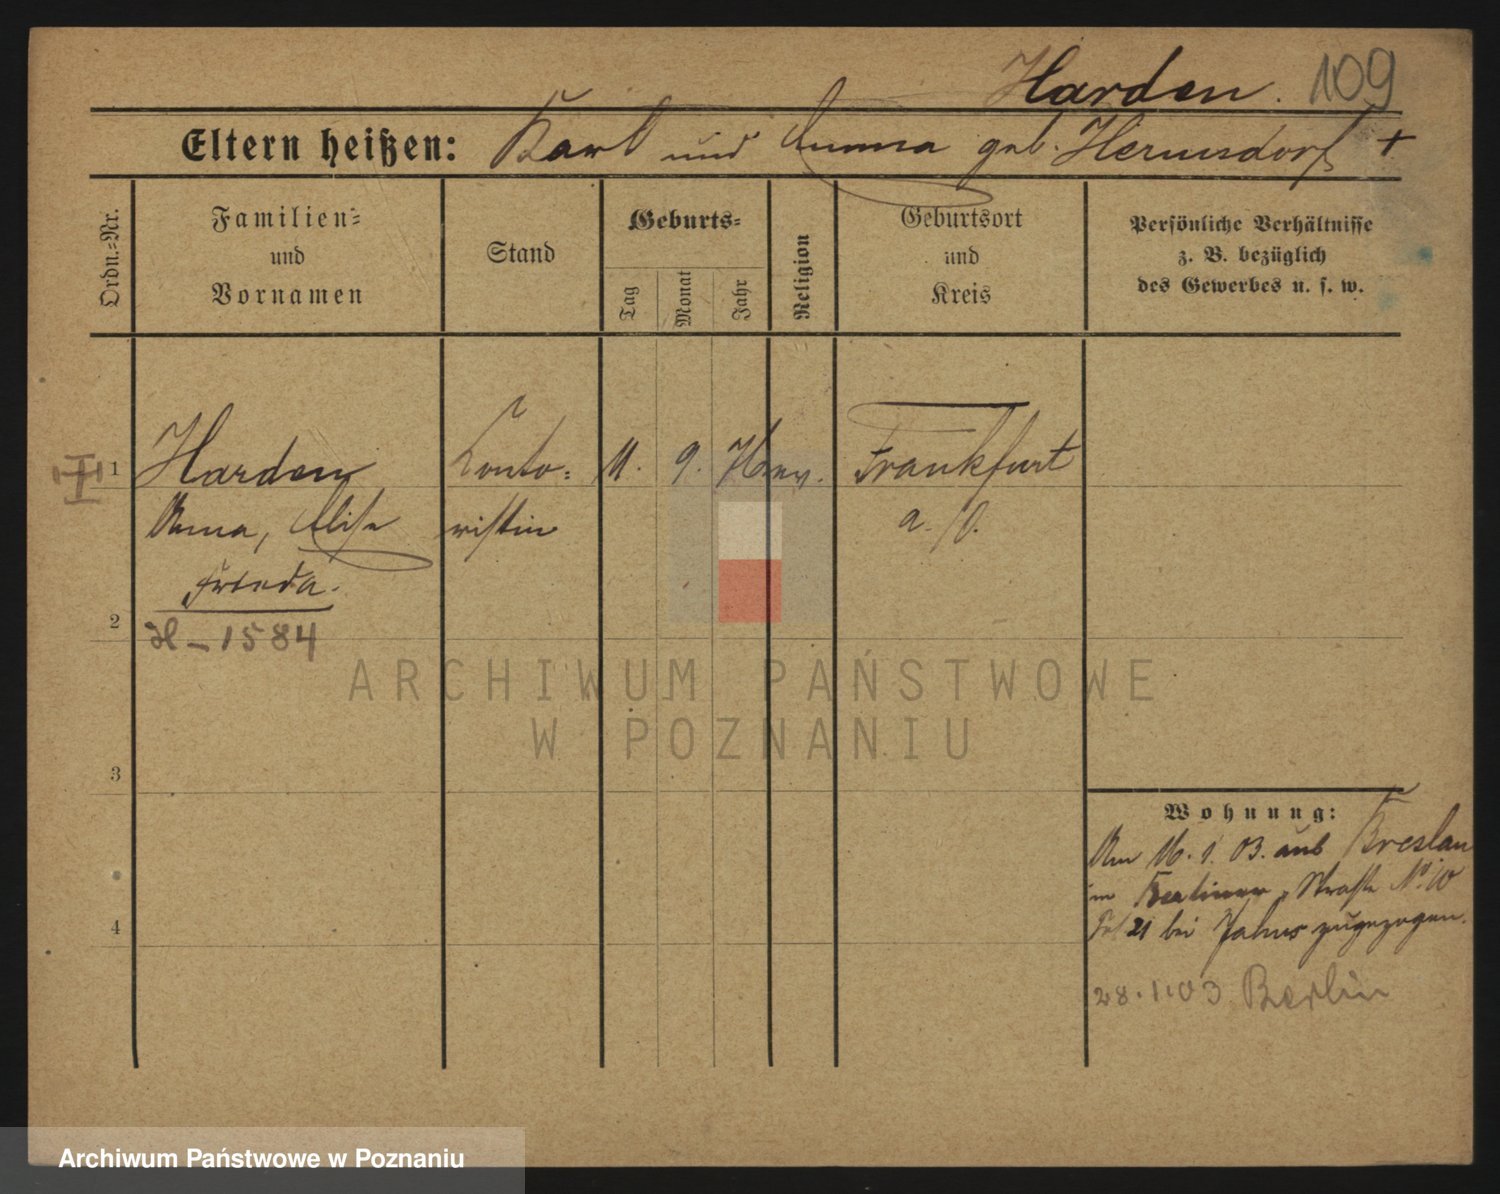 Harden. 109
Eltern heißen: Karl und Emma geb. Hermsdorf +
Ordn.-Nr.
Familien-
und
Vornamen
Stand
Geburts-
Tag
Monat
Jahr
Religion
Geburtsort
und
Kreis
Persönliche Verhältnisse
z. B. bezüglich
des Gewerbes u. s. w.
1 Harden Konto- 11. 9. ev. Frankfurt
Anna, Elise ristin a. O.
Frieda.
2
H-1584
ARCHIWUM PAŃSTWOWE
W POZNANIU
3
Wohnung:
Am 16. 1. 03. aus Breslau
in Berliner Straße No 10
21 bei Jahns zugezogen.
4
28.1.03 Berlin
Archiwum Państwowe w Poznaniu